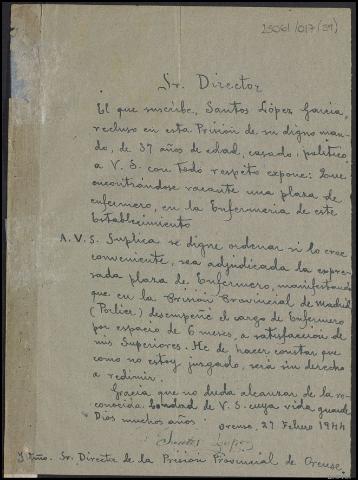 25061/017(39)
Sr. Director
El que suscribe, Santos López Garcia,
recluso en esta Prision de su digno man-
do, de 37 años de edad, casado, politico,
a V. S. con todo respeto expone: Que
encontrándose vacante una plaza de
enfermero, en la Enfermeria de este
Establecimiento
A. V. S. Suplica se digne ordenar si lo cree
conveniente, sea adjudicada la expre-
sada plaza de Enfermero, manifestando
que en la Prisión Provincial de Madrid
(Porlier) desempeñé el cargo de Enfermero
por espacio de 6 meses, a satisfacción de
mis Superiores. He de hacer constar que
como no estoy juzgado, seria sin derecho
a redimir.
Gracia que no duda alcanzar de la re-
conocida bondad de V. S. cuya vida guarde
Dios muchos años.
Orense, 27 Febrero 1944
Santos López
Sr. Director de la Prision Provincial de Orense.